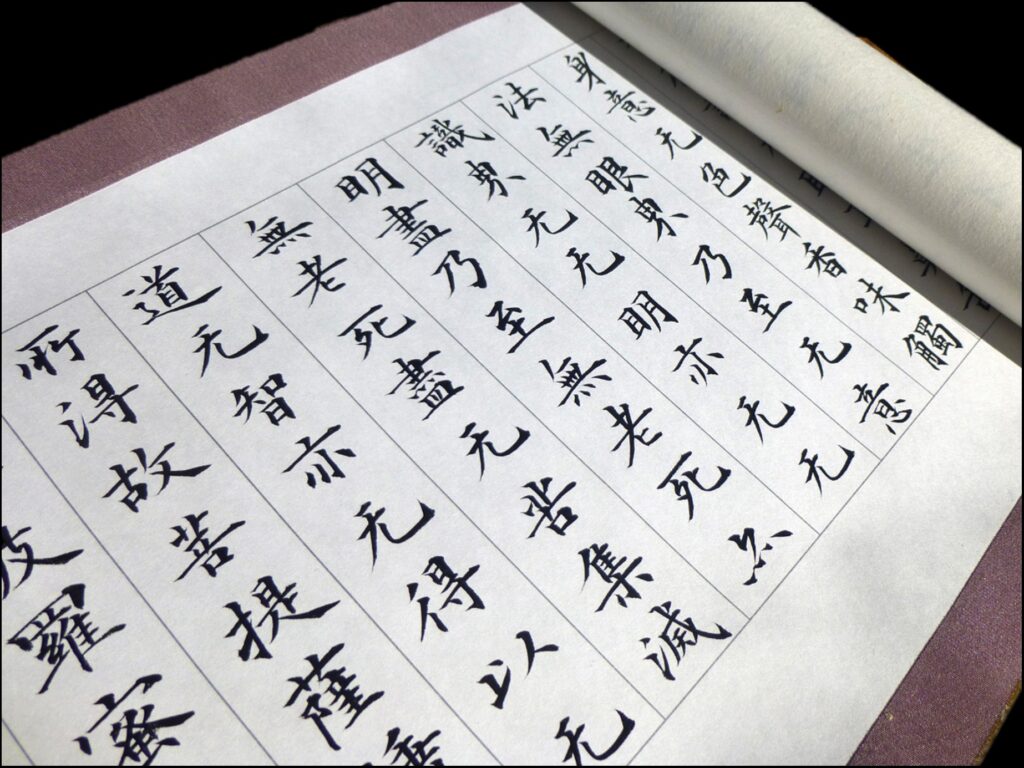 身意无色聲香味觸
法無眼界乃至无意
識界无无明亦无无
明盡乃至無老死亦
無老死盡无苦集滅
道无智亦无得以无
所得故菩提薩埵
羅蜜